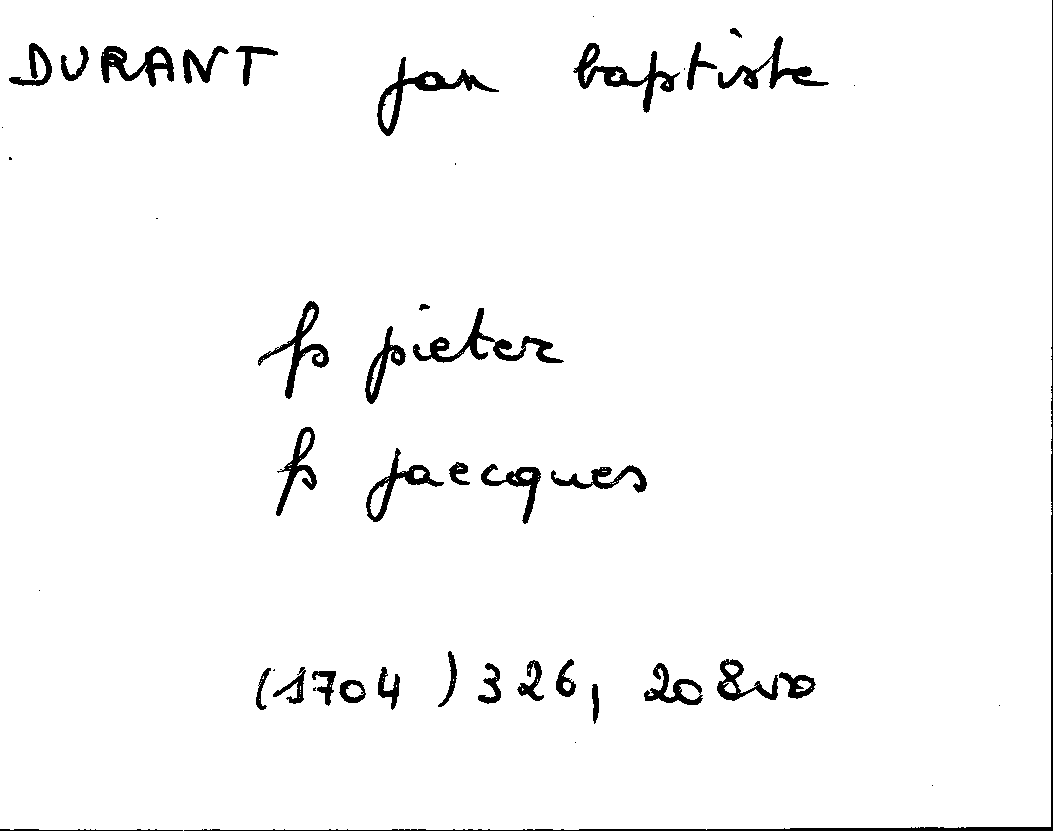 DURANT jan baptiste
fs pieter
fs jaecques
(1704) 326, 208vo